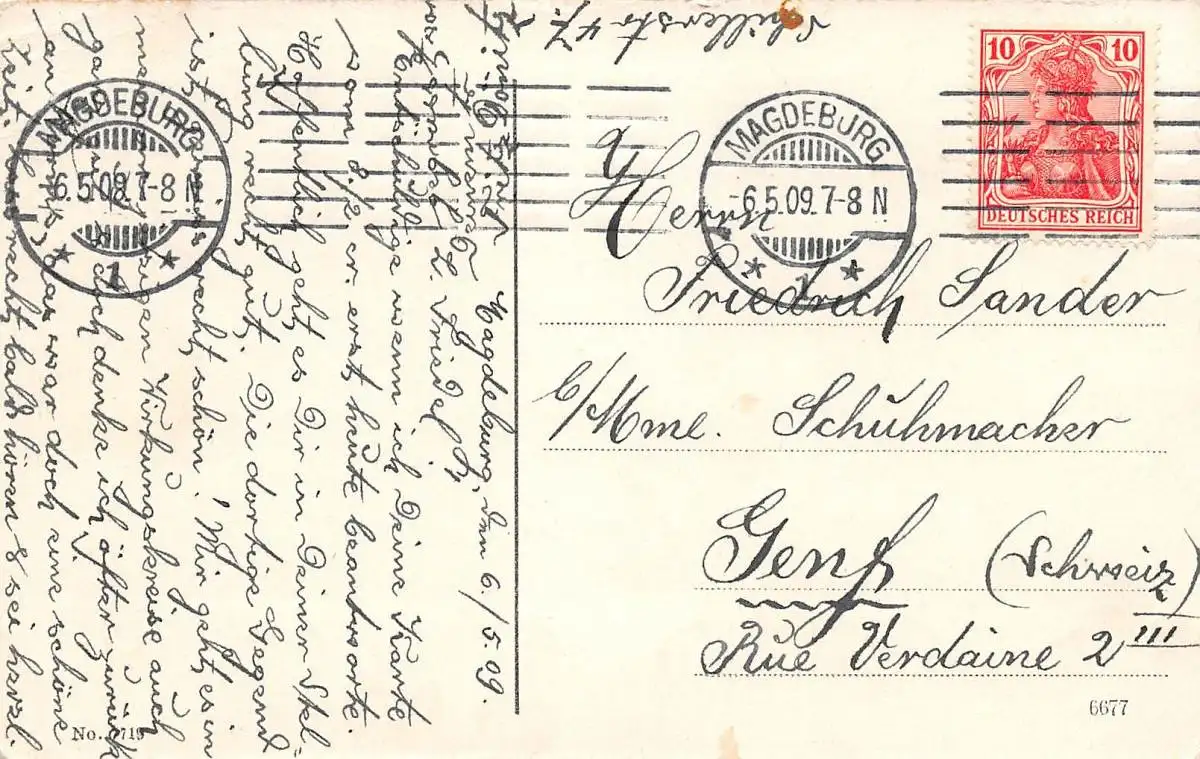 Magdeburg, den 6./5.09.
L. Friedel!
Entschuldige wenn ich Deine Karte
vom 8./2. er. erst heute beantworte.
Hoffentlich geht es Dir in Deiner Stel-
lung recht gut. Die dortige Gegend
ist recht schön. Mir geht es in
Wirkungskreise auch
doch denke ich öfter zurück
das war doch eine schöne
Zeit. recht bald hören & sei herzl.
Schillerstr 47.
MAGDEBURG
-6.5.09.7-8 N
* 1 *
MAGDEBURG
-6.5.09.7-8 N
* 1 *
10 10
DEUTSCHES REICH
Herrn
Friedrich Sander
b/Mme. Schuhmacher
Genf (Schweiz)
Rue Verdaine 2 III
6677